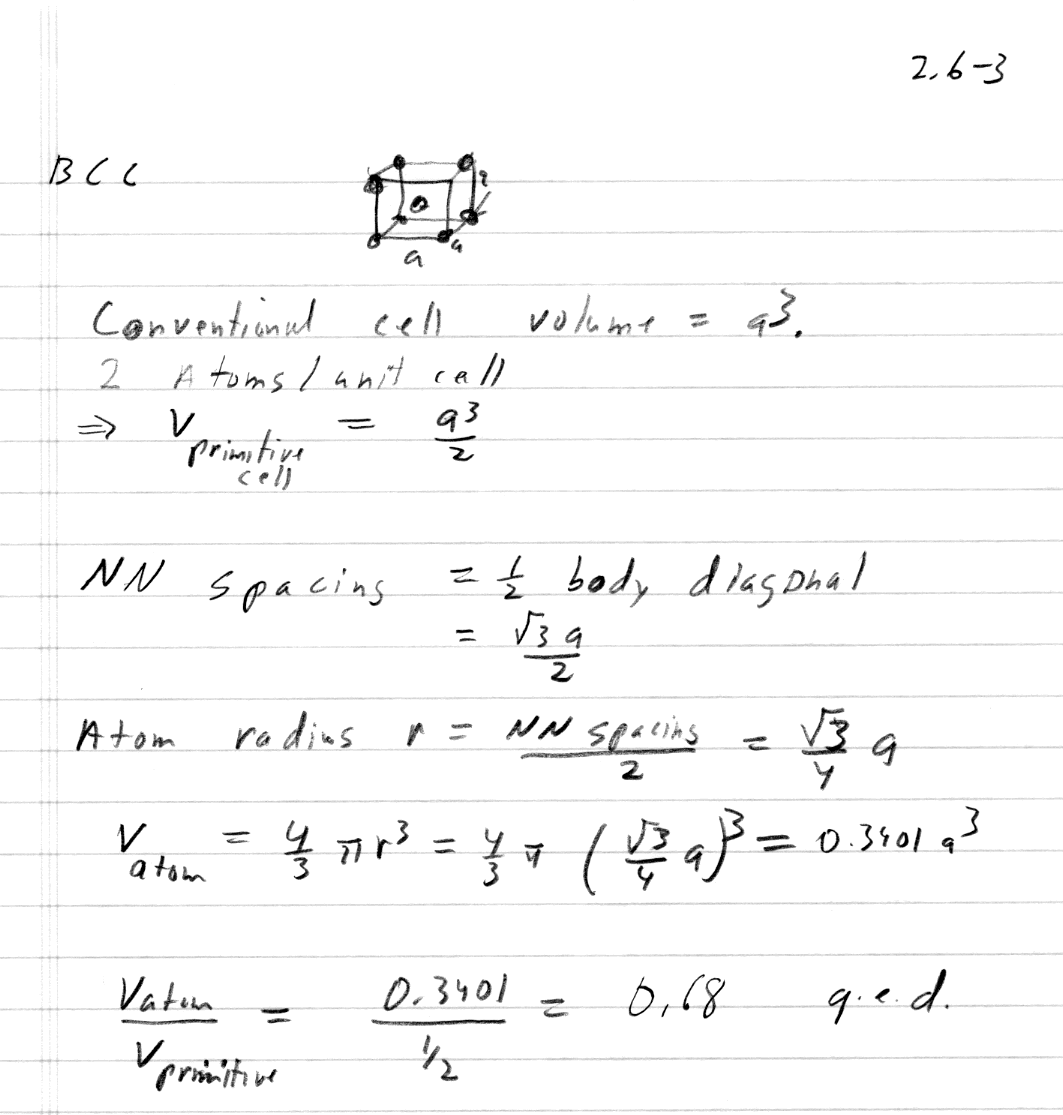 2.6-3
BCC
a
a
a
Conventional cell volume = a³.
2 Atoms/unit cell
⇒ V primitive cell = a³/2
NN spacing = 1/2 body diagonal
= √3 a/2
Atom radius r = NN spacing/2 = √3/4 a
V atom = 4/3 πr³ = 4/3 π (√3/4 a)³ = 0.3401 a³
Vatom/Vprimitive = 0.3401/1/2 = 0.68 q.e.d.